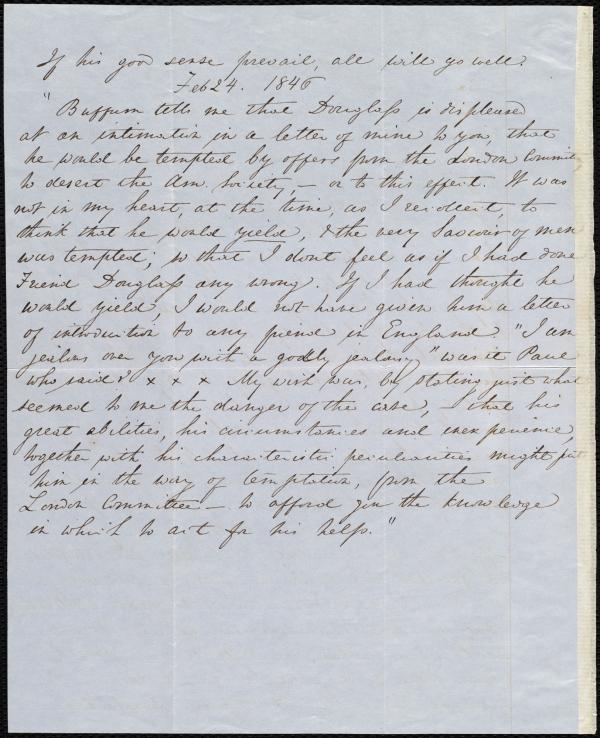 If his good sense prevail, all will go well.
Feb 24. 1846
"Buffum tells me that Douglass is displeased
at an intimation in a letter of mine to you, that
he would be tempted by offers from the London Committee
to desert the Am. Society, – or to this effect. It was
not in my heart, at the time, as I recollect, to
think that he would yield, & the very Saviour of men
was tempted; so that I dont feel as if I had done
Friend Douglass any wrong. If I had thought he
would yield, I would not have given him a letter
of introduction to any friend in England "I am
jealous over you with a godly jealousy," was it Paul
who said? x x x My wish was, by stating just what
seemed to me the danger of the case, – that his
great abilities, his circumstances and inexperience,
together with his characteristic peculiarities might put
him in the way of temptation, from the
London Committee – to afford you the knowledge
in which to act for his help."